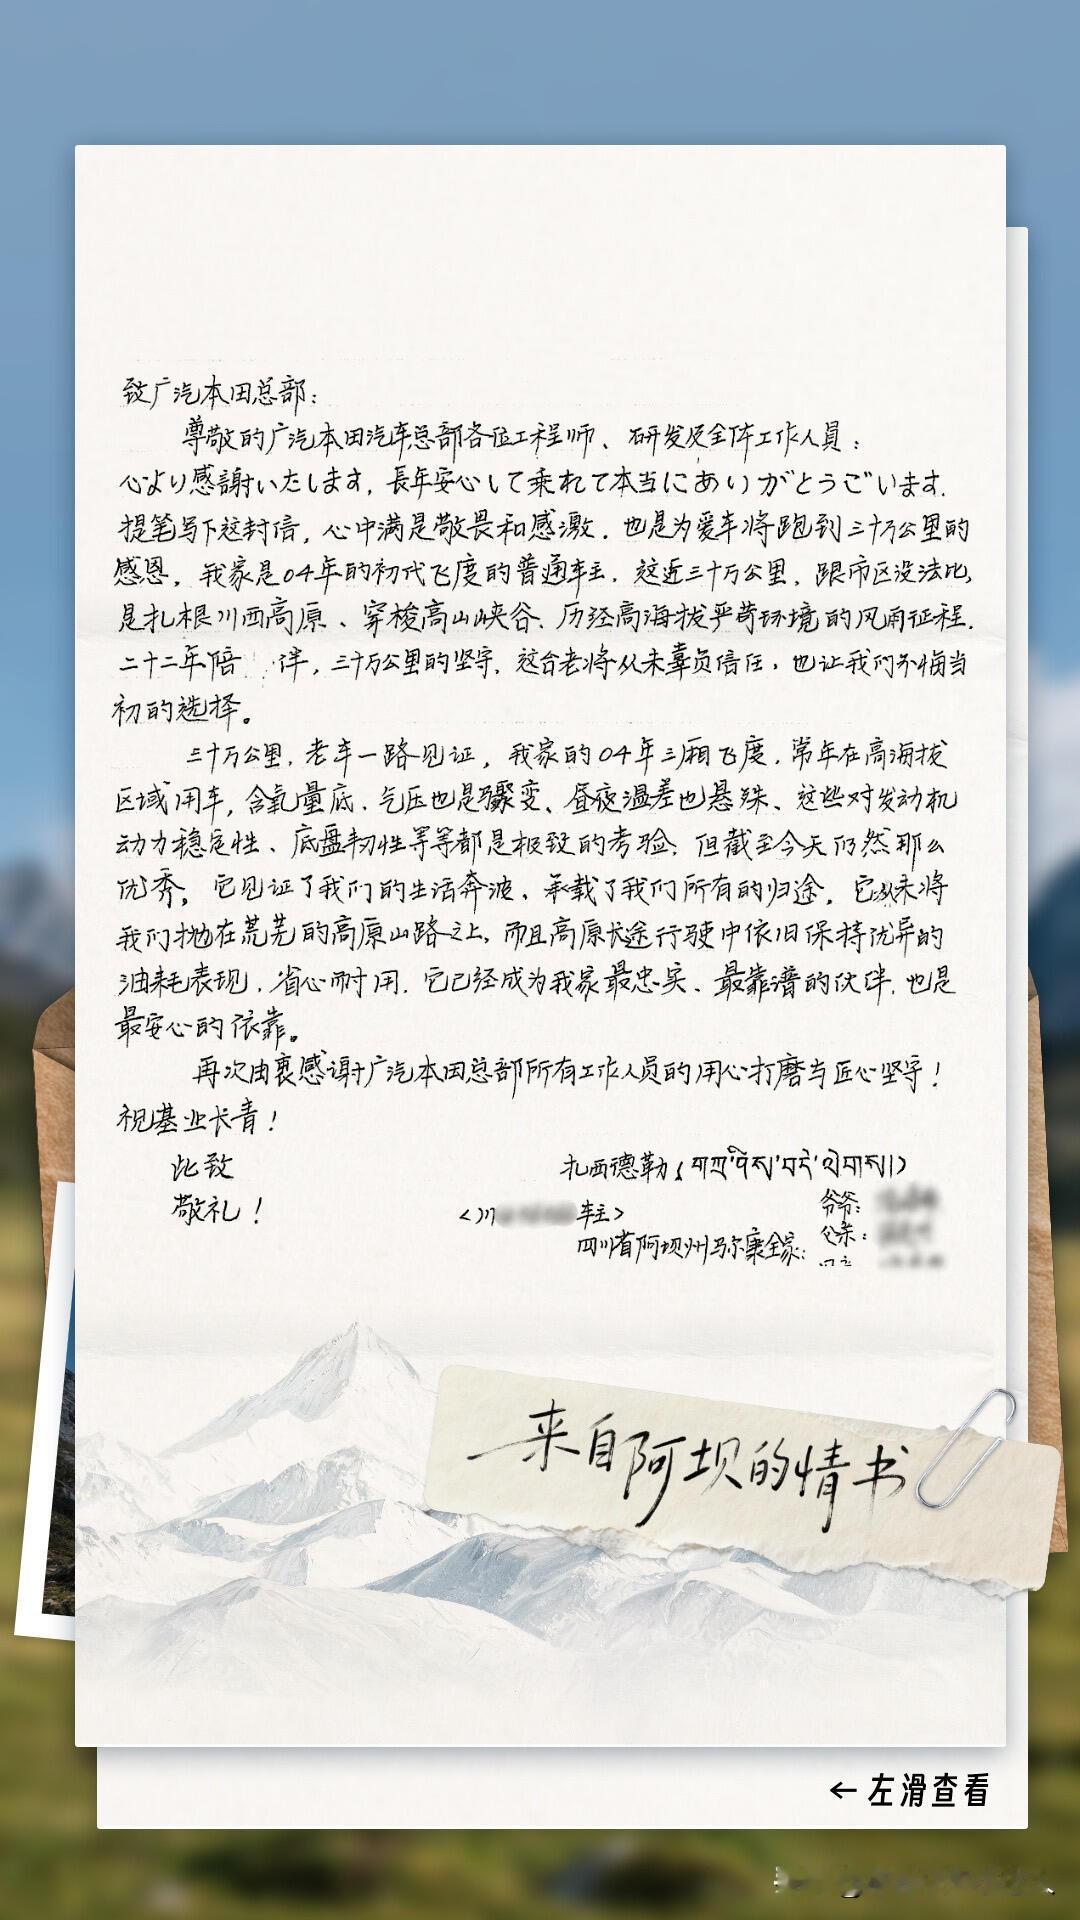 致广汽本田总部：
尊敬的广汽本田汽车总部各位工程师、研发及全体工作人員：
心より感謝いたします，長年安心して乗れて本当にありがとうございます．
提笔写下这封信，心中满是敬畏和感激．也是为爱车将跑到三十万公里的
感恩，我家是04年的初代飞度的普通车主．这近三十万公里，跟市区没法比，
是扎根川西高原、穿梭高山峡谷、历经高海拔严苛环境的风雨征程．
二十二年陪伴，三十万公里的坚守，这台老将从未辜负信任，也让我们不悔当
初的选择。
三十万公里，老车一路见证，我家的04年三厢飞度，常年在高海拔
区域用车，含氧量底、气压也是骤变、昼夜温差也悬殊、这些对发动机
动力稳定性、底盘韧性等等都是极致的考验，但截至今天仍然那么
优秀。它见证了我们的生活奔波、承载了我们所有的归途，它从未将
我们抛在荒芜的高原山路之上，而且高原长途行驶中依旧保持优异的
油耗表现，省心耐用，它已经成为我家最忠实、最靠谱的伙伴，也是
最安心的依靠。
再次由衷感谢广汽本田总部所有工作人员的用心打磨与匠心坚守！
祝基业长青！
此致
敬礼！
扎西德勒（བཀྲ་ཤིས་བདེ་ལེགས།）
<川 车主>
四川省阿坝州马尔康全家：
爷爷：
父亲：
来自阿坝的情书
← 左滑查看